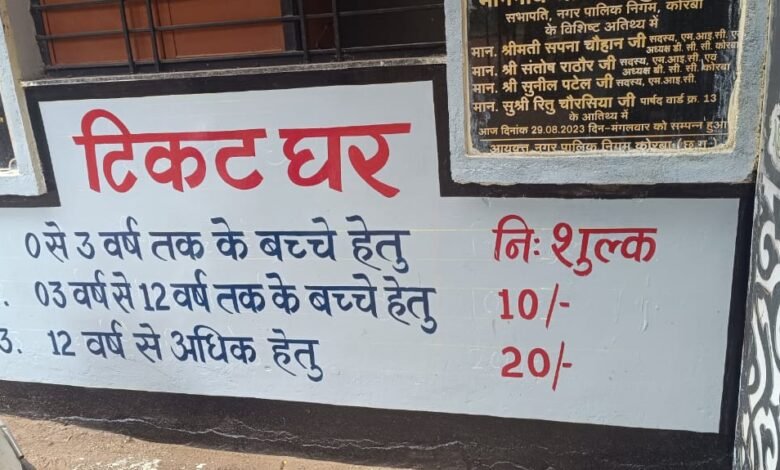 सभापति, नगर पालिक निगम, कोरबा
के विशिष्ट अतिथ्य में
मान. श्रीमती सपना चौहान जी सदस्य, एम.आइ.सी एवं अध्यक्ष बी. सी. सी. कोरबा
मान. श्री संतोष राठौर जी सदस्य, एम.आइ.सी. एवं अध्यक्ष डी. सी. सी. कोरबा
मान. श्री सुनील पटेल जी सदस्य, एम.आइ.सी.
मान. सुश्री रितु चौरसिया जी पार्षद वार्ड क्र. 13
के आतिथ्य में
आज दिनांक 29.08.2023 दिन-मंगलवार को सम्पन्न हुआ
आयुक्त नगर पालिक निगम कोरबा (छ.ग.)
टिकट घर
0 से 3 वर्ष तक के बच्चे हेतु निः शुल्क
. 03 वर्ष से 12 वर्ष तक के बच्चे हेतु 10/-
3. 12 वर्ष से अधिक हेतु 20/-